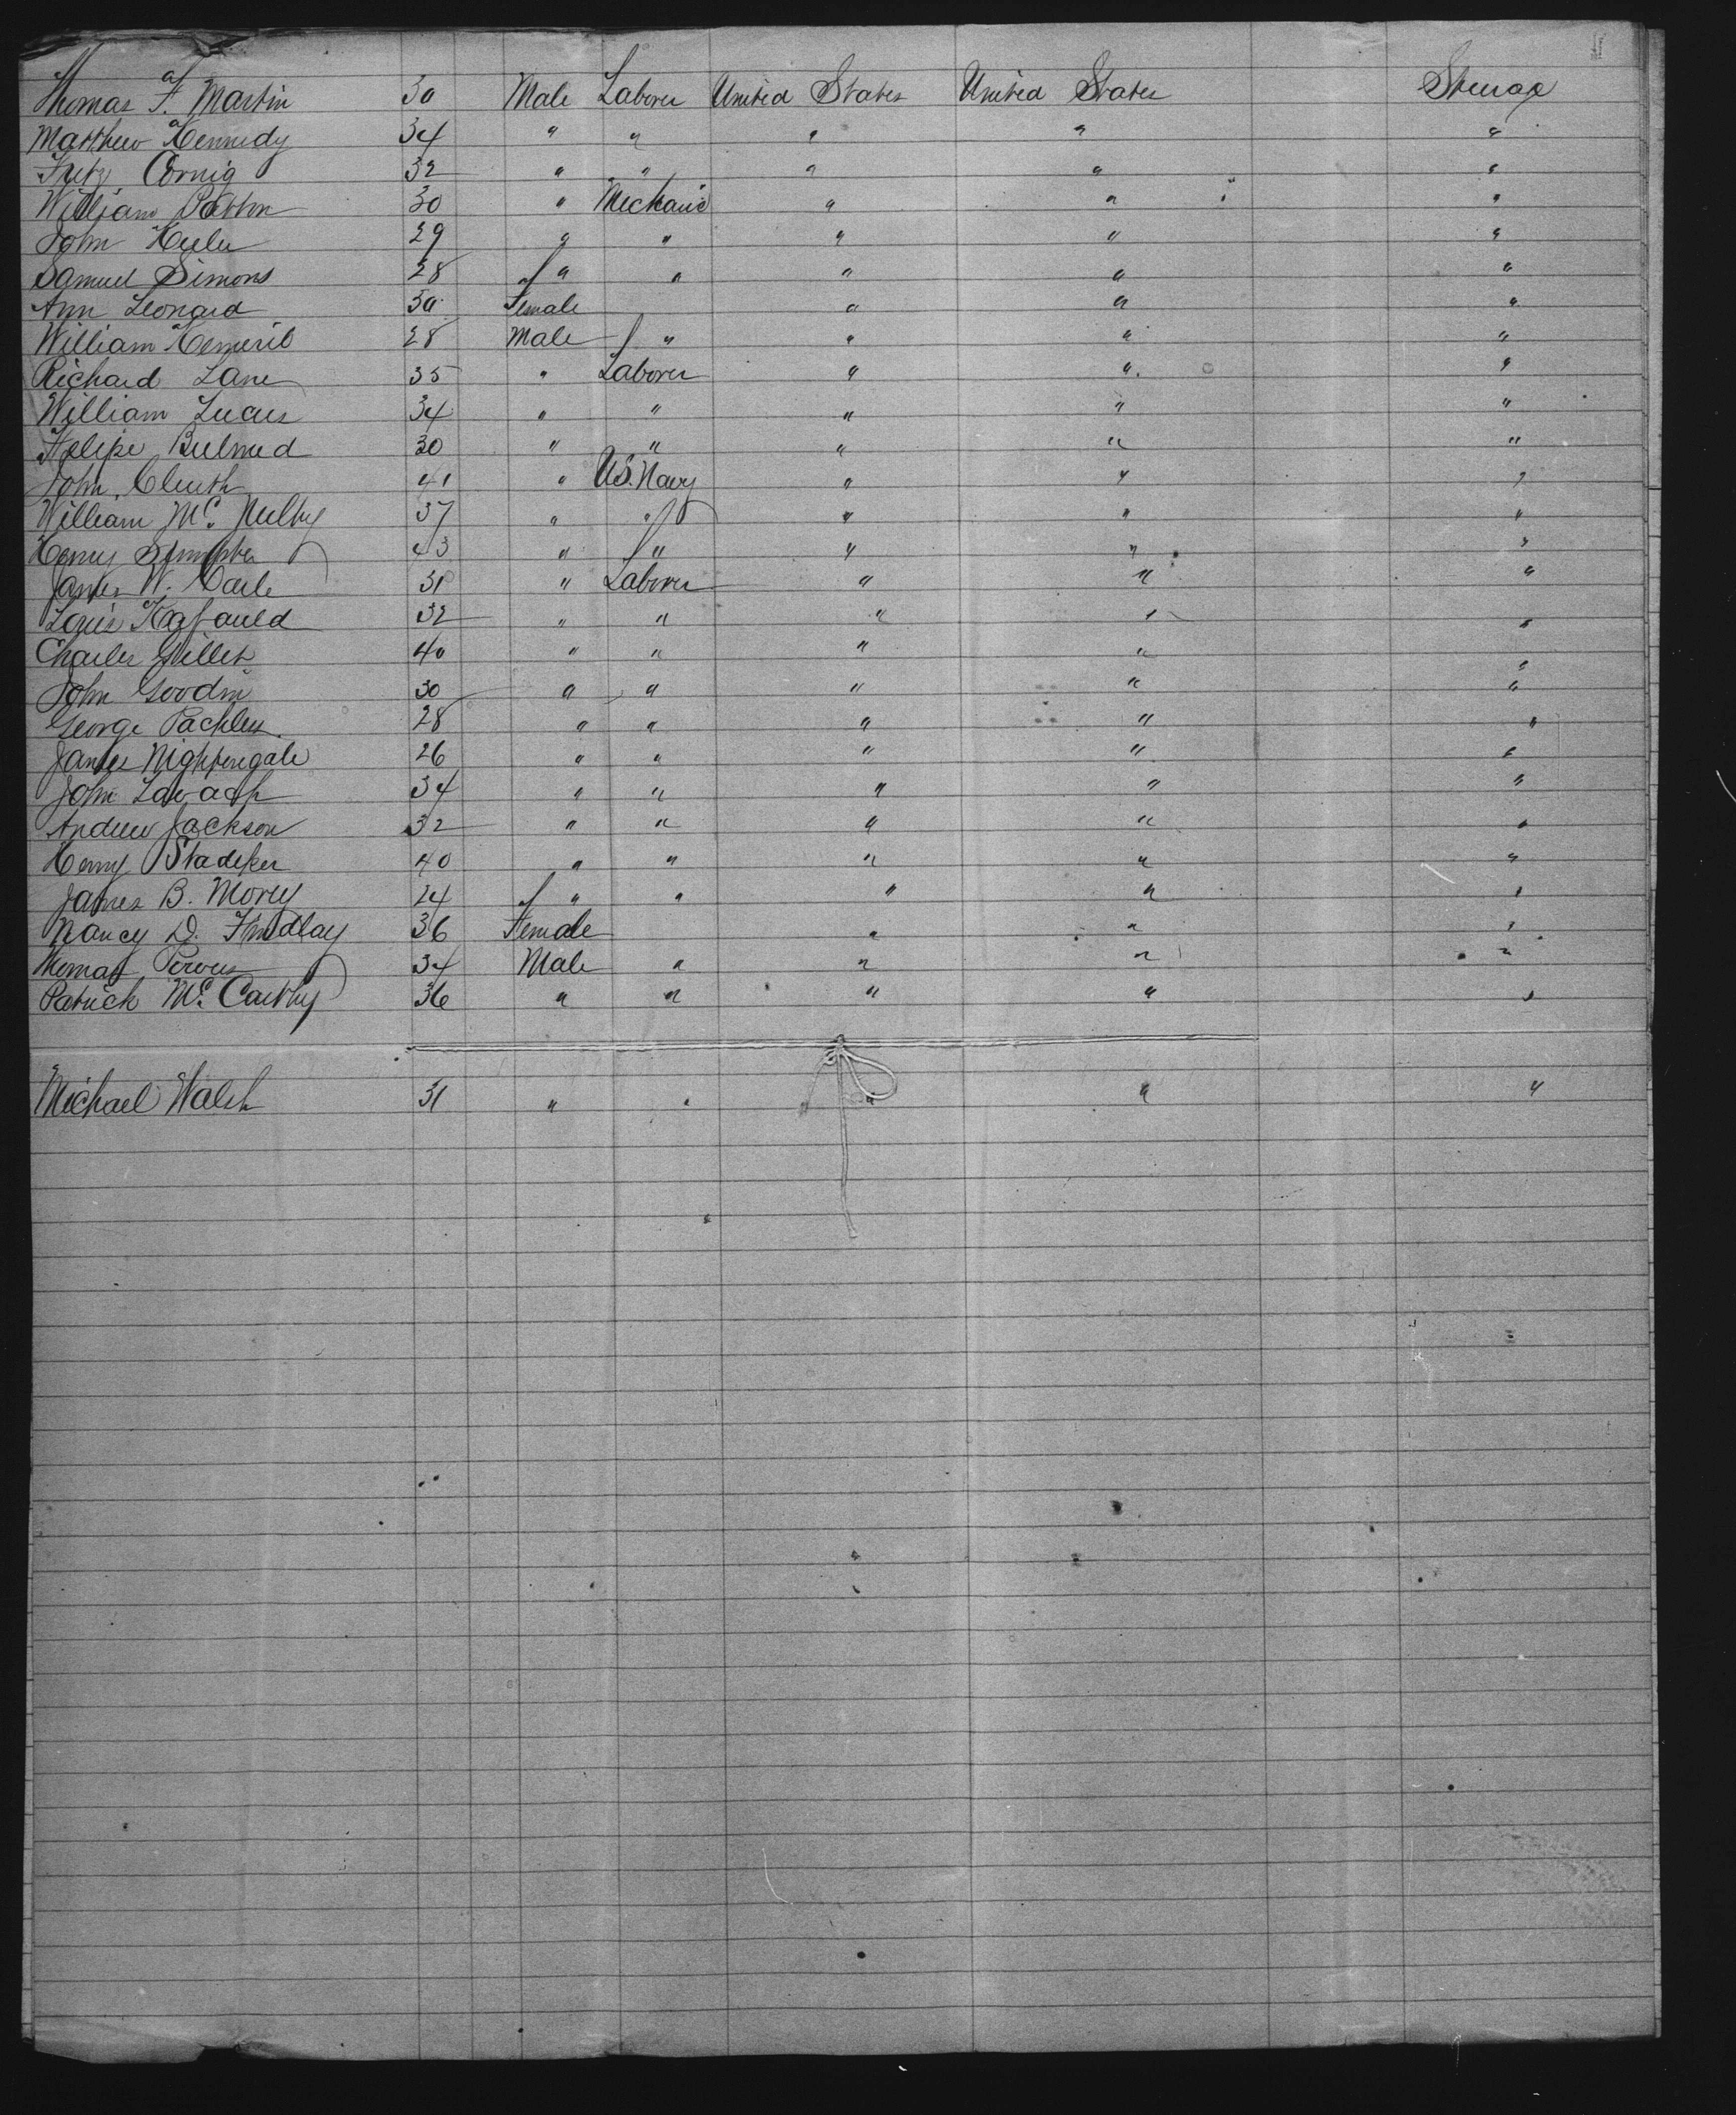 Thomas F. Martin 30 Male Laborer United States United States Steerage
Matthew Kennedy 34 " " " " "
Fritz Cornig 32 " " " " "
William 30 " Mechanic " " "
John 29 " " " " "
Samuel Simons 28 " " " " "
Ann Leonard 30 Female " " "
William 28 Male " " " "
Richard Lane 35 " Laborer " " "
William Lucas 34 " " " " "
Felipe 30 " " " " "
John 41 " U.S. Navy " " "
William Mc. Nulty 37 " " " " "
Henry 43 " " " " "
James W. Carle 31 " Laborer " " "
Louis 32 " " " " "
Charles Gillet 40 " " " " "
John Goodin 30 " " " " "
George 28 " " " " "
James Nightengale 26 " " " " "
John 34 " " " " "
Andrew Jackson 32 " " " " "
Henry Stadeker 40 " " " " "
James B. Morey 24 " " " " "
Nancy D. Findlay 36 Female " " "
Thomas 34 Male " " " "
Patrick Mc. Carthy 36 " " " " "
Michael Walsh 31 " " " " "